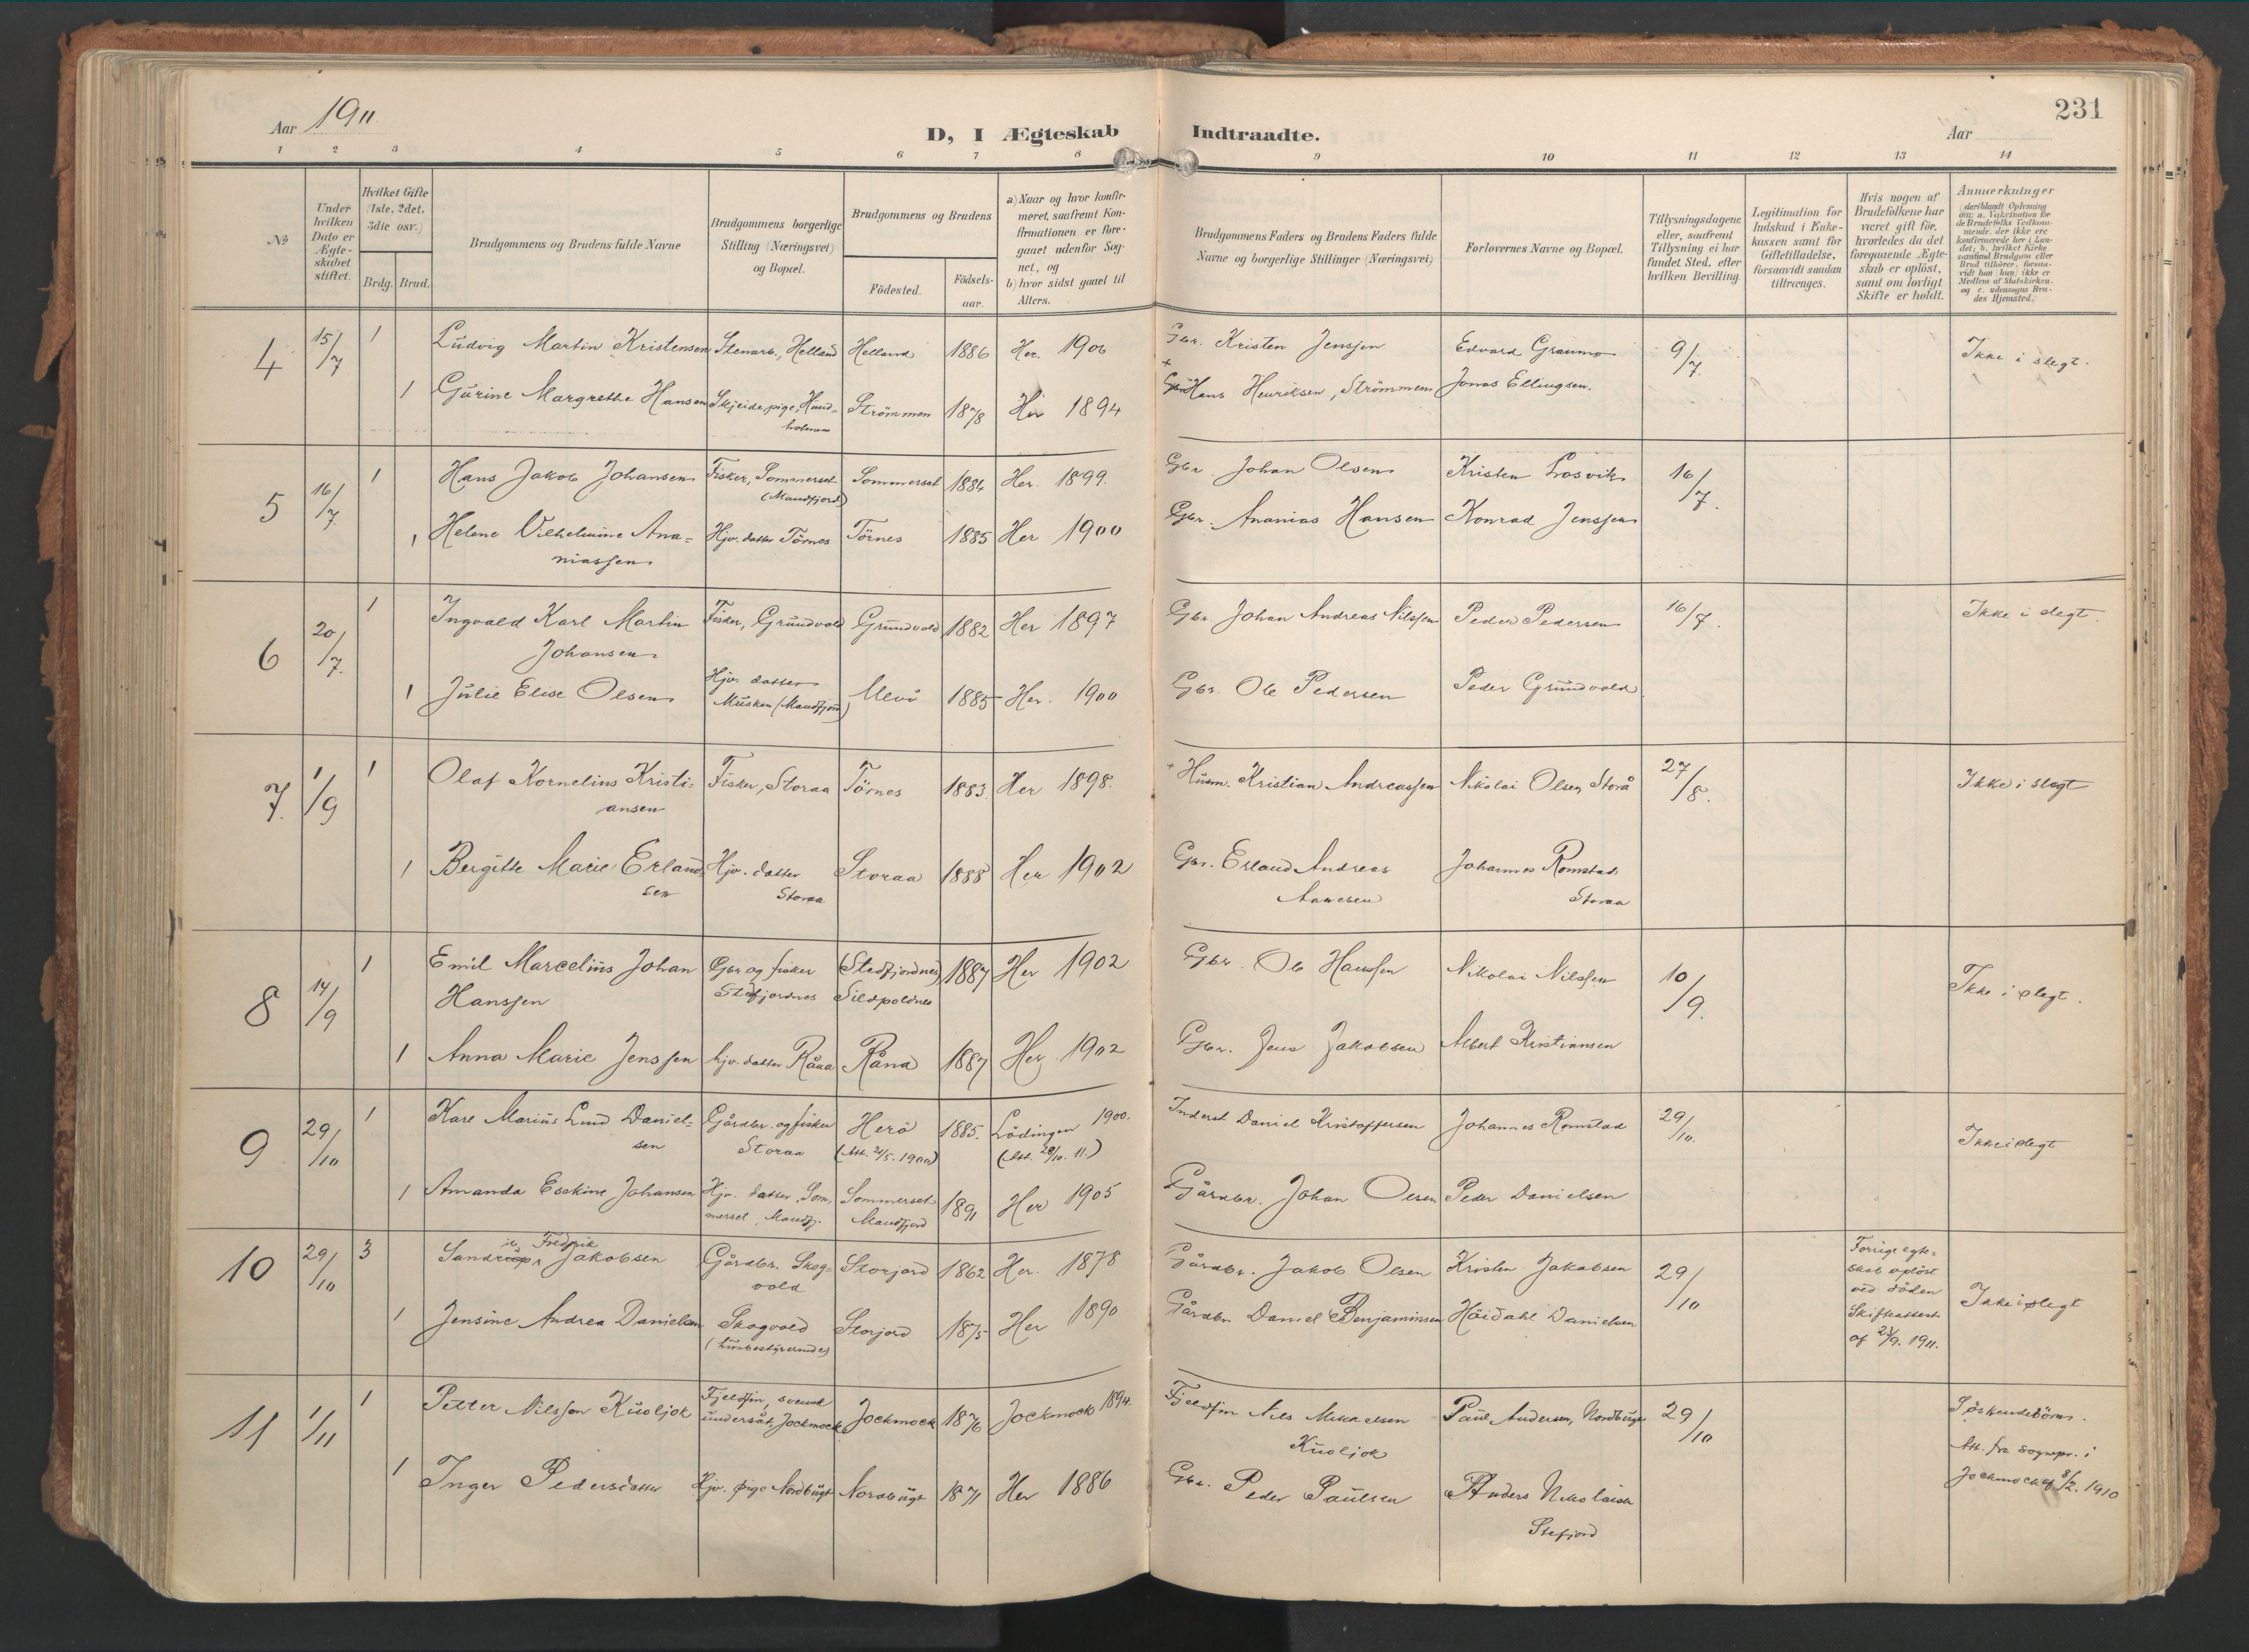 Aar 1911
D, I Ægteskab Indtraadte.
Aar
231
1 2 3 4 5 6 7 8 9 10 11 12 13 14
No
Under hvilken Dato er Ægteskabet stiftet.
Hvilket Gifte (1ste, 2det, 3die osv.)
Brdg. Brud.
Brudgommens og Brudens fulde Navne
Brudgommens borgerlige Stilling (Næringsvei) og Bopæl.
Brudgommens og Brudens
Födested.
Födselsaar.
a) Naar og hvor konfirmeret, saafremt Konfirmationen er foregaaet udenfor Sognet, og
b) hvor sidst gaaet til Alters.
Brudgommens Faders og Brudens Faders fulde Navne og borgerlige Stillinger (Næringsvei)
Forlovernes Navne og Bopæl.
Tillysningsdagene eller, saafremt Tillysning ei har fundet Sted, efter hvilken Bevilling.
Legitimation for Indskud i Enkekassen samt for Giftetilladelse, forsaavidt saadan tiltrænges.
Hvis nogen af Brudefolkene har været gift för, hvorledes da det foregaaende Ægteskab er oplöst, samt om lovligt Skifte er holdt.
Anmerkninger (deriblandt Oplysning om: a. Vakcination for de Brudefolks Vedkommende, der ikke ere konfirmerede her i Landet; b. hvilket Kirkesamfund Brudgom eller Brud tilhörer, forsaavidt han (hun) ikke er Medlem af Statskirken, og c. udensogns Brudes Hjemsted.)
4 15/7 1 Ludvig Martin Kristensen Stenarb., Helland Helland 1886 Her. 1906 Gbr. Kristen Jenssen Edvard Graumo 9/7 Ikke i slegt.
1 Gurine Margrethe Hansen Skjeidepige, Hund= Strömmen 1878 Her 1894 + Hans Henriksen, Strömmen Jonas Ellingsen.
holmen
5 16/7 1 Hans Jakob Johansen Fisker, Sommerset Sommerset 1884 Her. 1899. Gbr. Johan Olsen Kristen Losvik 16/7.
(Mandfjord)
1 Helene Vilhelmine Ana= Hjv. datter Törnes Törnes 1885 Her 1900 Gbr. Ananias Hansen Konrad Jenssen
niassen
6 20/7. 1 Ingvald Karl Martin Fisker, Grundvold Grundvold 1882 Her 1897 Gbr. Johan Andreas Nilssen Peder Pedersen 16/7. Ikke i slegt.
Johansen
1 Julie Elise Olsen Hjv. datter 1885 Her. 1900 Gbr. Ole Pedersen Peder Grundvold
Musken (Mandfjord)
7. 1/9 1 Olaf Kornelius Kristi= Fisker, Storaa Törnes 1883. Her 1898. + Husm. Kristian Andreassen Nikolai Olsen, Storå 27/8. Ikke i slegt
ansen
1 Bergitte Marie Erland= Hjv. datter Storaa 1888 Her 1902 Gbr. Erland Andreas Johannes Romstad
sen Storaa Storaa
8 14/9 1 Emil Marcelius Johan Gbr og fisker (Stedfjordnes) 1887 Her 1902 Gbr. Ole Hanssen Nikolai Nilssen 10/9. Ikke i slegt.
Hanssen Stefjordnes Sildpoldnes
1 Anna Marie Jenssen hjv. datter Råna Råna 1887 Her. 1902 Gbr. Jens Jakobsen Albert Kristiansen
9 29/10 1 Kare Marius Lund Daniel= Gårdbr. og fisker Herö 1885. Lödingen 1900. Inderst Daniel Kristoffersen Johannes Romstad 29/10. Ikke i slegt
sen Storaa (Att. 2/5. 1900) (Att. 28/10. 11.)
1 Amanda Eskine Johansen Hjv. datter, Som= Sommerset 1891 Her 1905 Gårdbr. Johan Olsen Peder Danielsen
merset, Mandfj. Mandfjord
10 29/10 3 Fredrik Jakobsen Gårdbr. Skog= Storjord 1862 Her. 1878 Gårdbr. Jakob Olsen Kristen Jakobsen 29/10 Forrige egte=
vold skab oplöst
ved döden
Skifteattest
af 23/9. 1911.
Ikke i slegt
1 Jensine Andrea Danielsen Skogvold Storjord 1875 Her 1890 Gårdbr. Daniel Benjaminsen Höidahl Danielsen
(husbestyrerinde)
11 1/11 1 Petter Nilsson Kuoljok Fjeldfin, svensk Jockmock 1876 Jockmock 1894. Fjeldfin Nils Mikaelsen Paul Andersen, Nordbugt 29/10 Söskendebörn.
undersåt, Jockmock Kuoljok
Att. fra sognepr. i
Jockmock af 8/2. 1910
1 Inger Pedersdatter Hjv. pige Nordbugt Nordbugt 1871 Her 1886 Gbr. Peder Paulsen Anders Nikolaisen
Stefjord